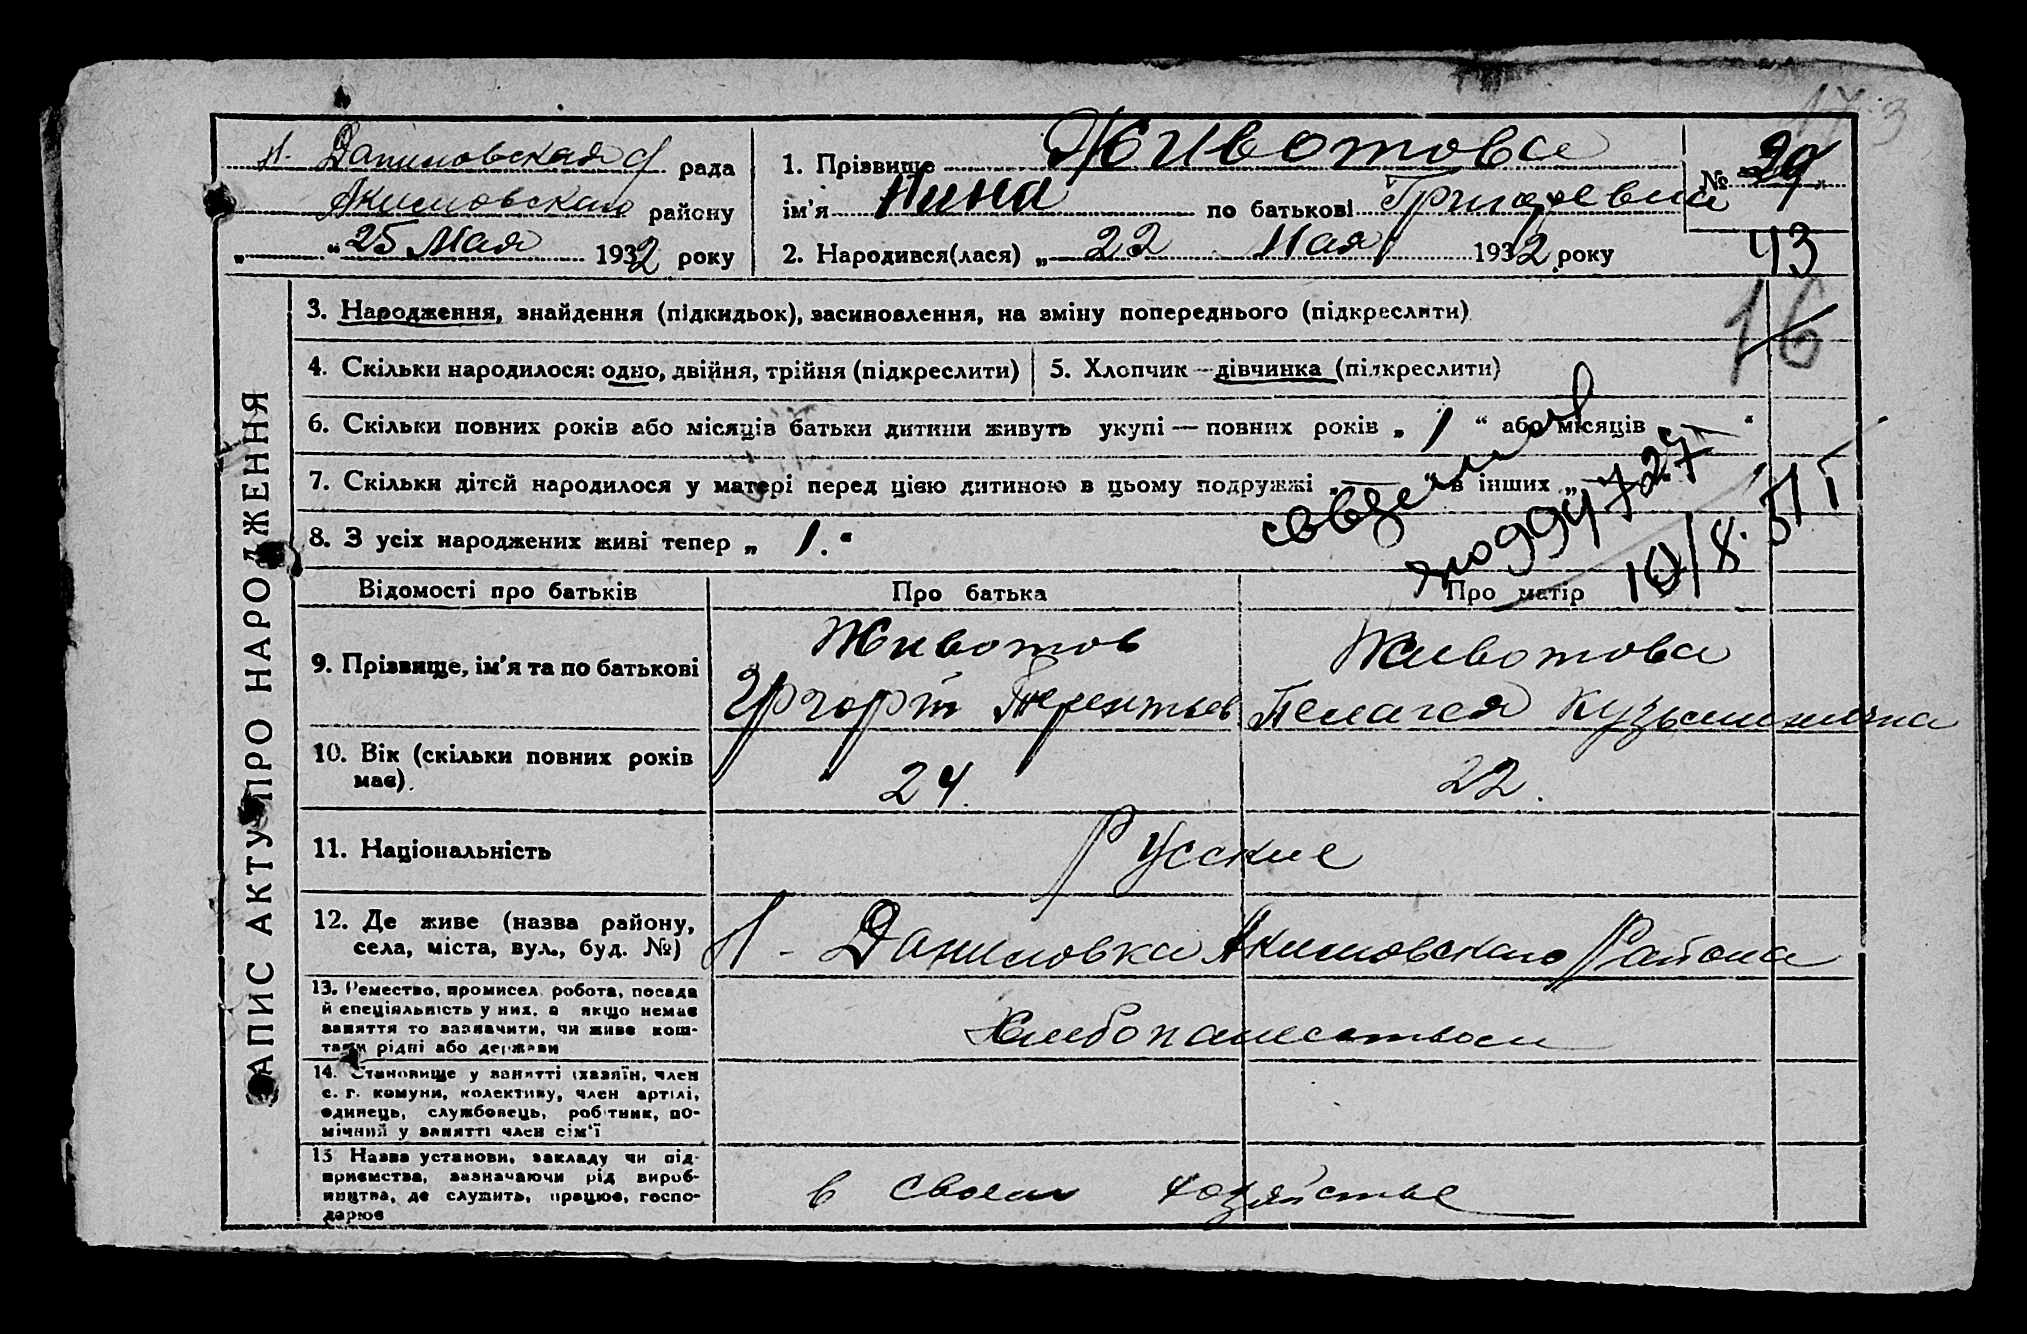 Н. Даниловская с/ рада
Акимовского району
„ “ 25 Мая 1932 року
1. Прізвище Животова
ім'я Нина по батькові Григорьевна
2. Народився(лася) „ 22 Мая 1932 року
№ 29
43
16
173
ЗАПИС АКТУ ПРО НАРОДЖЕННЯ
3. Народження, знайдення (підкидьок), засиновлення, на зміну попереднього (підкреслити)
4. Скільки народилося: одно, двійня, трійня (підкреслити)
5. Хлопчик — дівчинка (підкреслити)
6. Скільки повних років або місяців батьки дитини живуть укупі — повних років „ 1 “ або місяців — “
7. Скільки дітей народилося у матері перед цією дитиною в цьому подружжі „ — “ в інших „ —
8. З усіх народжених живі тепер „ 1. “
10/8.
Відомості про батьків Про батька Про матір
9. Прізвище, ім'я та по батькові
Животов
Терентьев
Животова
Пелагея
10. Вік (скільки повних років має).
24.
22.
11. Національність
Русские
12. Де живе (назва району, села, міста, вул., буд. №)
Н - Даниловка Акимовского Района
13. Ремество, промисел, робота, посада
й спеціяльність у них, а якщо немає
заняття то зазначити, чи живе кош-
тами рідні або держави
Хлебопашеством
14. Становище у занятті (хазяїн, член
с. г. комуни, колективу, член артілі,
одинець, службовець, робітник, по-
мічний у занятті член сім'ї
15 Назва установи, закладу чи під-
приємства, зазначаючи рід вироб-
ництва, де служить, працює, госпо-
дарює
в своем хозяйстве